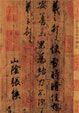 羲之頓首快雪時晴
佳想安善未果為結
力不次王羲之頓首
山陰張侯